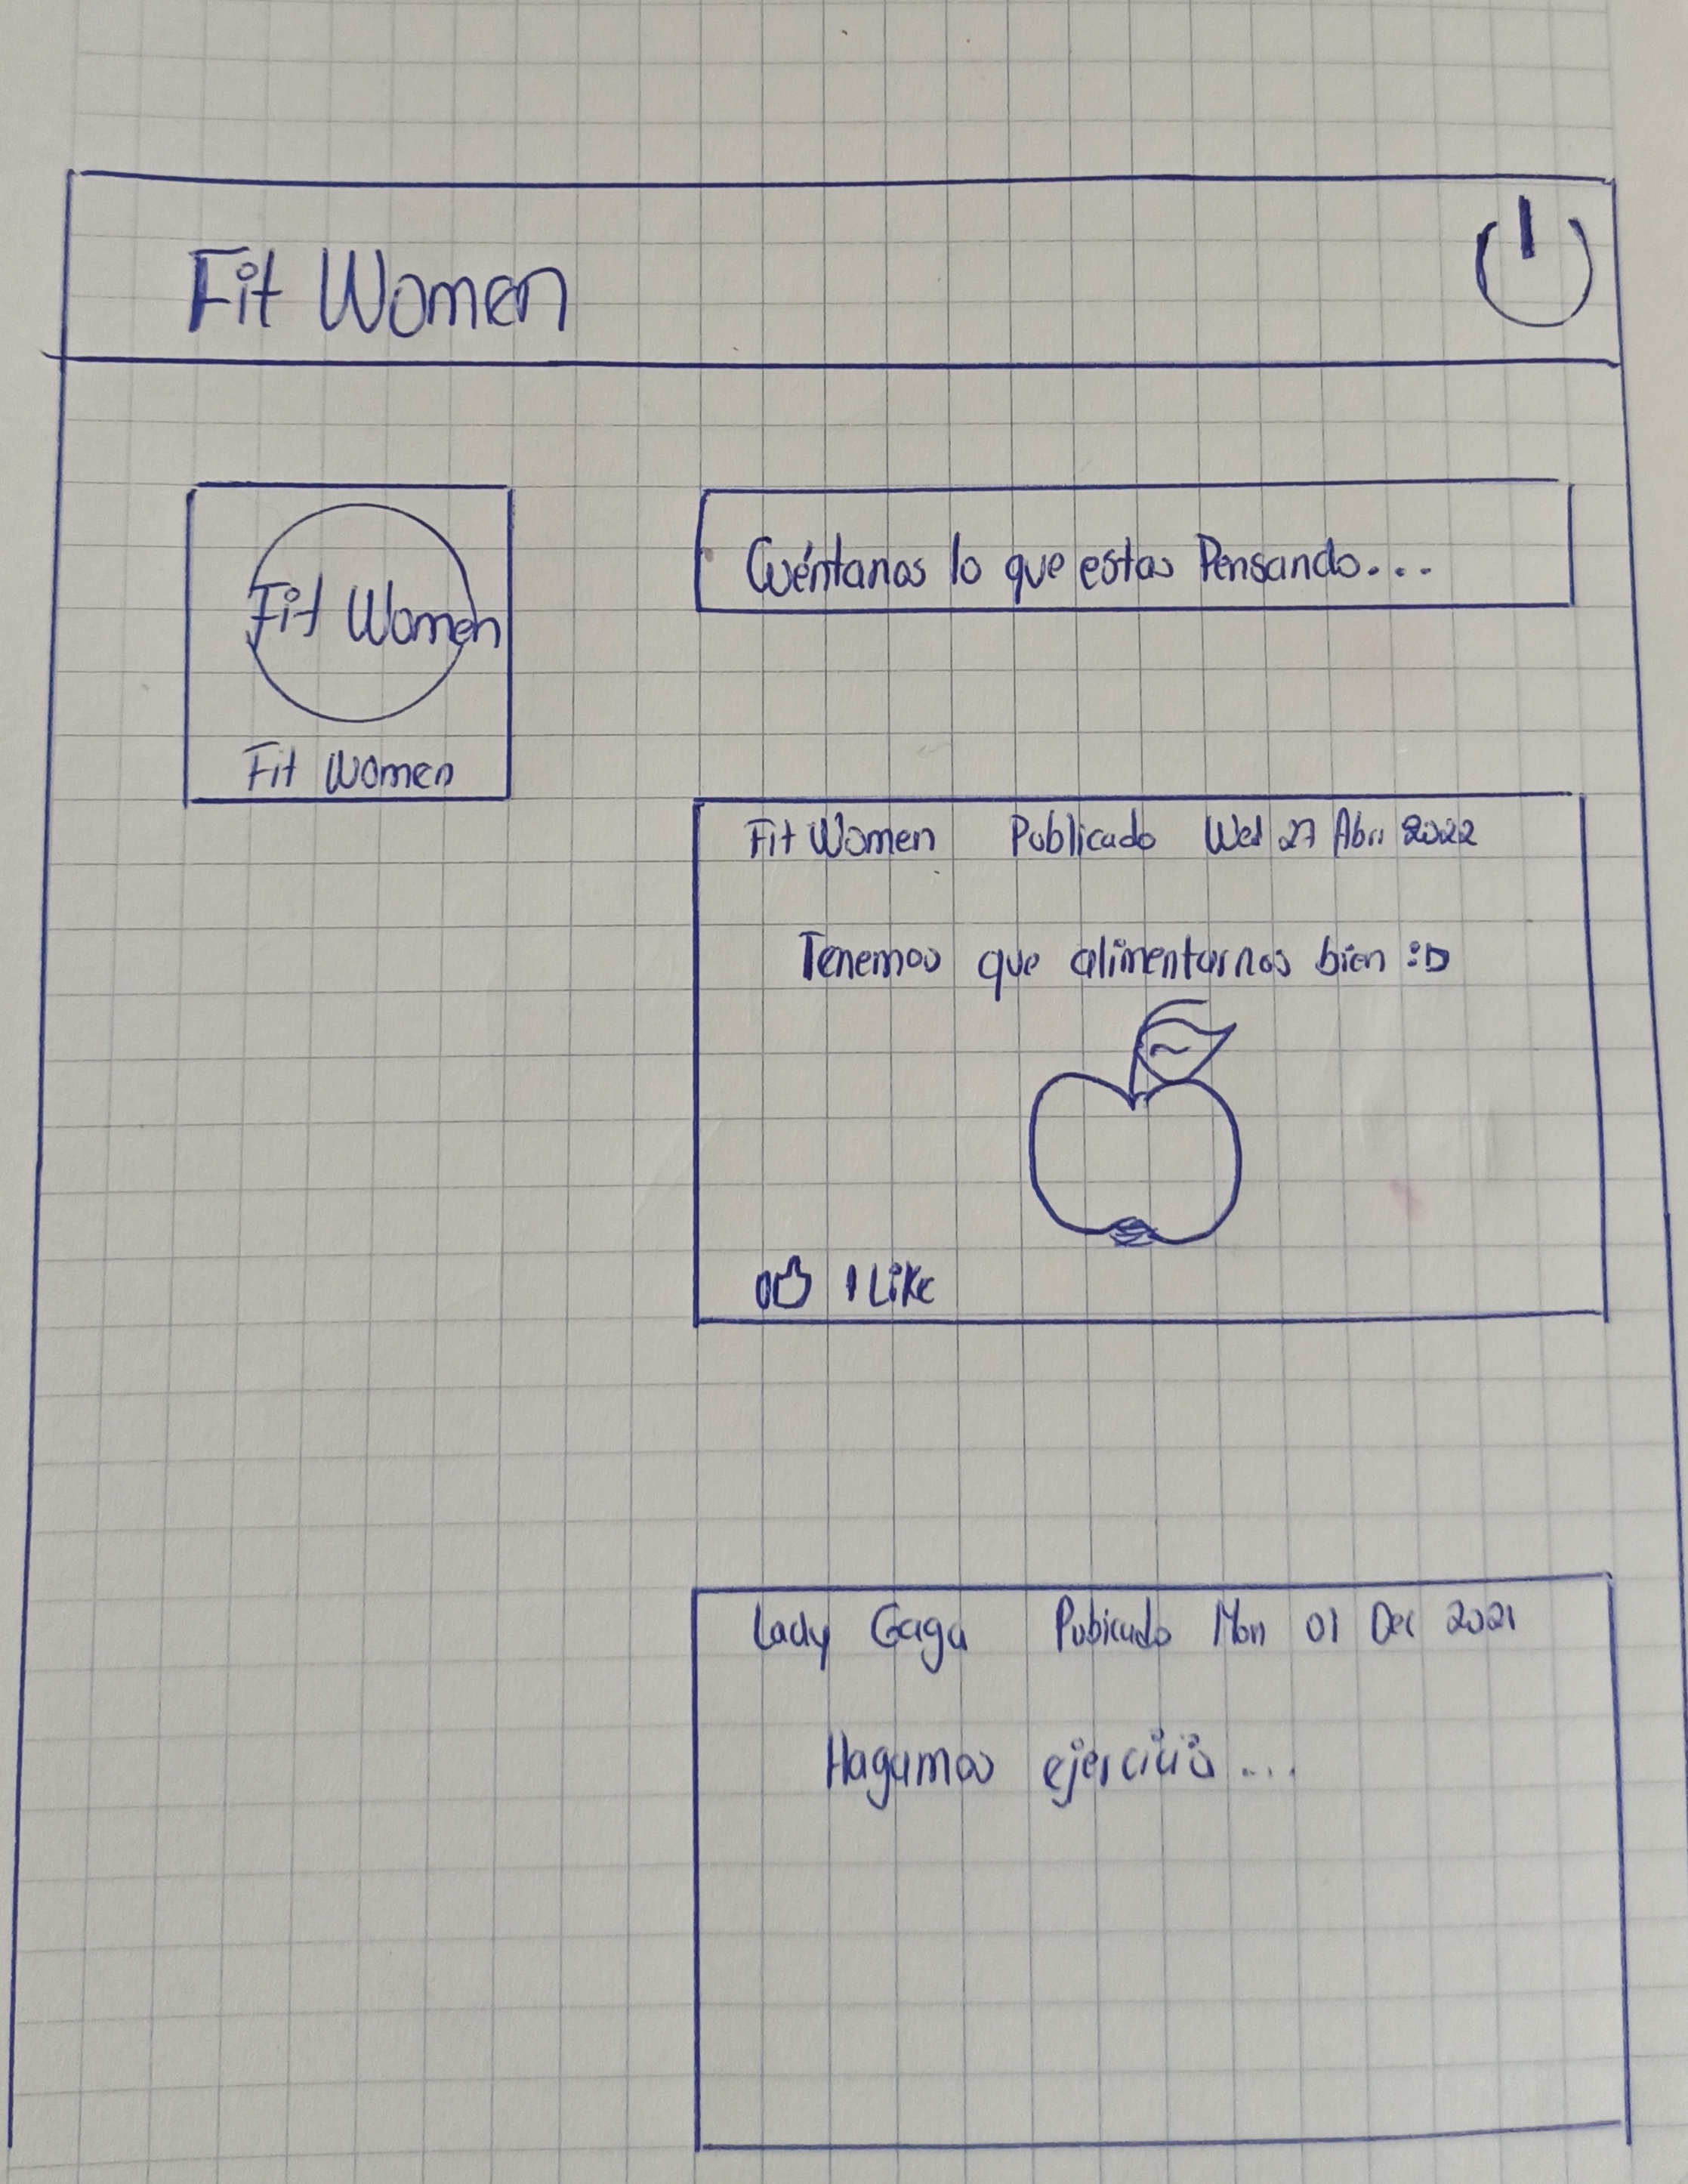 Fit Women
Fit Women
Fit Women
Cuéntanos lo que estas Pensando....
Fit Women Publicado Wed 27 Abri 2022
Tenemos que alimentarnos bien :D
1 Like
Lady Gaga Pubicado Mon 01 Dec 2021
Hagamos ejercicio ...